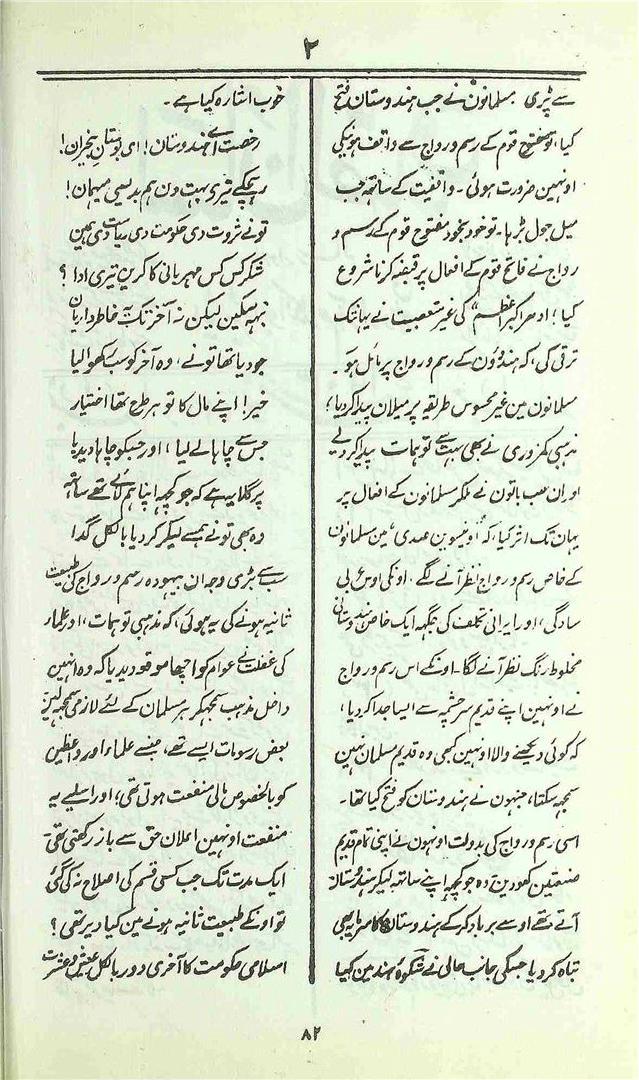 ۲
سے پڑی مسلمانوں نے جب ہندوستان فتح
کیا، تو مفتوح قوم کے رسم و رواج سے واقف ہونیکی
اونہین ضرورت ہوئی ۔ واقفیت کے ساتھ جب
میل جول بڑہا ۔ تو خود بخود مفتوح قوم کے رسم و
رواج نے فاتح قوم کے افعال پر قبضہ کرنا شروع
کیا؛ ادھر اکبر اعظم" کی غیر متعصبیت نے یہانتک
ترقی کی، کہ ہندوؤن کے رسم و رواج پر مائل ہو ۔
مسلمانون مین غیر محسوس طریقہ پر میلان پیدا کردیا؛
مذہبی کمزوری نے بھی بہت سے توہمات پیدا کر لیے
اور ان سب باتون نے ملکر مسلمانون کے افعال پر
یہان تک اثر کیا، کہ اونیسوین صدی مین مسلمانون
کے خاص رسم و رواج نظر آنے لگے ۔ اونکی اوس عربی
سادگی، اور ایرانی تکلف کی جگہہ ایک خاص ہندوستان
مخلوط رنگ نظر آنے لگا ۔ اونکے اس رسم و رواج
نے اونہین اپنے قدیم سرچشمہ سے ایسا جدا کردیا،
کہ کوئی دیکھنے والا اونہین کبھی وہ قدیم مسلمان نہین
سمجہہ سکتا، جنہون نے ہندوستان کو فتح کیا تھا ۔
اسی رسم و رواج کی بدولت اونہون نے اپنی تمام قدیم
صنعتین کھودین ۔ وہ جو کچہہ اپنے ساتھ لیکر ہندوستان
آئے تھے اوسے برباد کرکے ہندوستان کا سرمایہ بھی
تباہ کردیا جسکی جانب حالی نے شکوۂ ہند مین کیا
خوب اشارہ کیا ہے ۔
رخصت اے ہندوستان! ای بوستان بیخزان!
رہچکے تیری بہت دن ہم بدیسی میہمان!
تونے ثروت دی حکومت دی ریاست دی ہمین
شکر کس کس مہربانی کا کرین تیری ادا؟
نبہہ سکین لیکن نہ آخر تک یہ خاطرداریان
جو دیا تھا تونے، وہ آخر کو سب رکھوالیا
خیر! اپنے مال کا تو ہر طرح تھا اختیار
جس سے چاہا لے لیا، اور جسکو چاہا دیدیا
پر گلا یہ ہے کہ جو کچہہ اپنا ہم لائے تھے ساتھ
وہ بھی تونے ہمسے لیکر کردیا بالکل گدا
سب سے بڑی وجہ ان بیہودہ رسم و رواج کی طبیعت
ثانیہ ہونے کی یہ ہوئی، کہ مذہبی توہمات، اور علماء
کی غفلت نے عوام کو اچھا موقع دیدیا کہ وہ انہین
داخل مذہب سمجہکر ہر مسلمان کے لئے لازمی سمجہہ لین
بعض رسومات ایسے تھے، جنسے علماء اور واعظین
کو بالخصوص مالی منفعت ہوتی تھی؛ اور اسلیے یہ
منفعت اونہین اعلان حق سے باز رکھتی تھی
ایک مدت تک جب کسی قسم کی اصلاح نہ کی گئی
تو اونکے طبیعت ثانیہ ہونے مین کیا دیر تھی؟
اسلامی حکومت کا آخری دور بالکل عیش و عشرت
۸۲